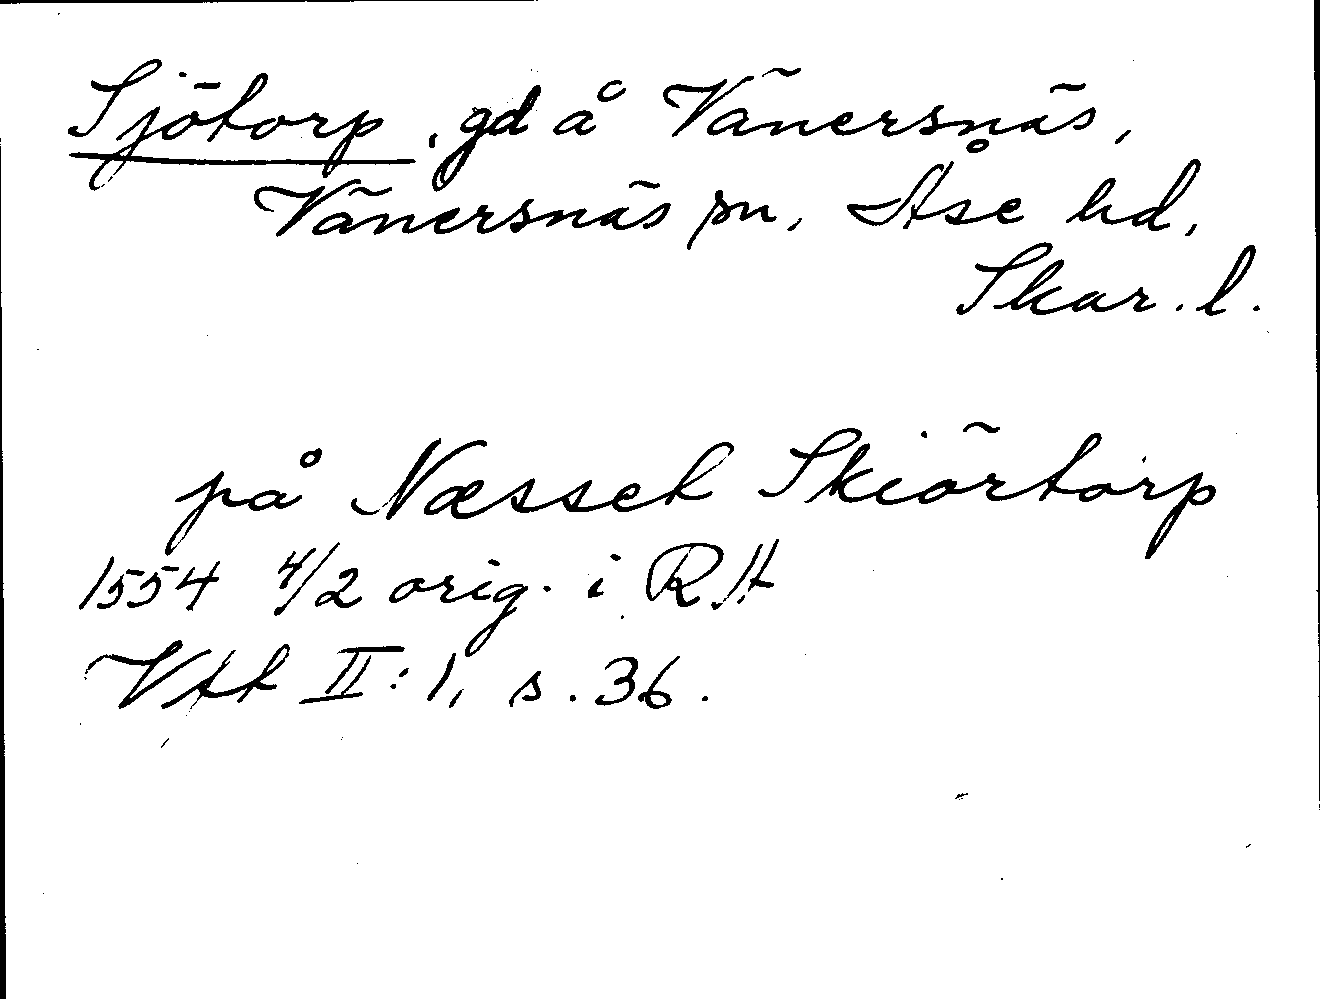 Sjötorp, gd å Vänersnäs,
Vänersnäs sn, Åse hd,
Skar. l.
på Næsset Skiörtorp
1554 4/2 orig. i RA
Vtt II:1, s. 36.